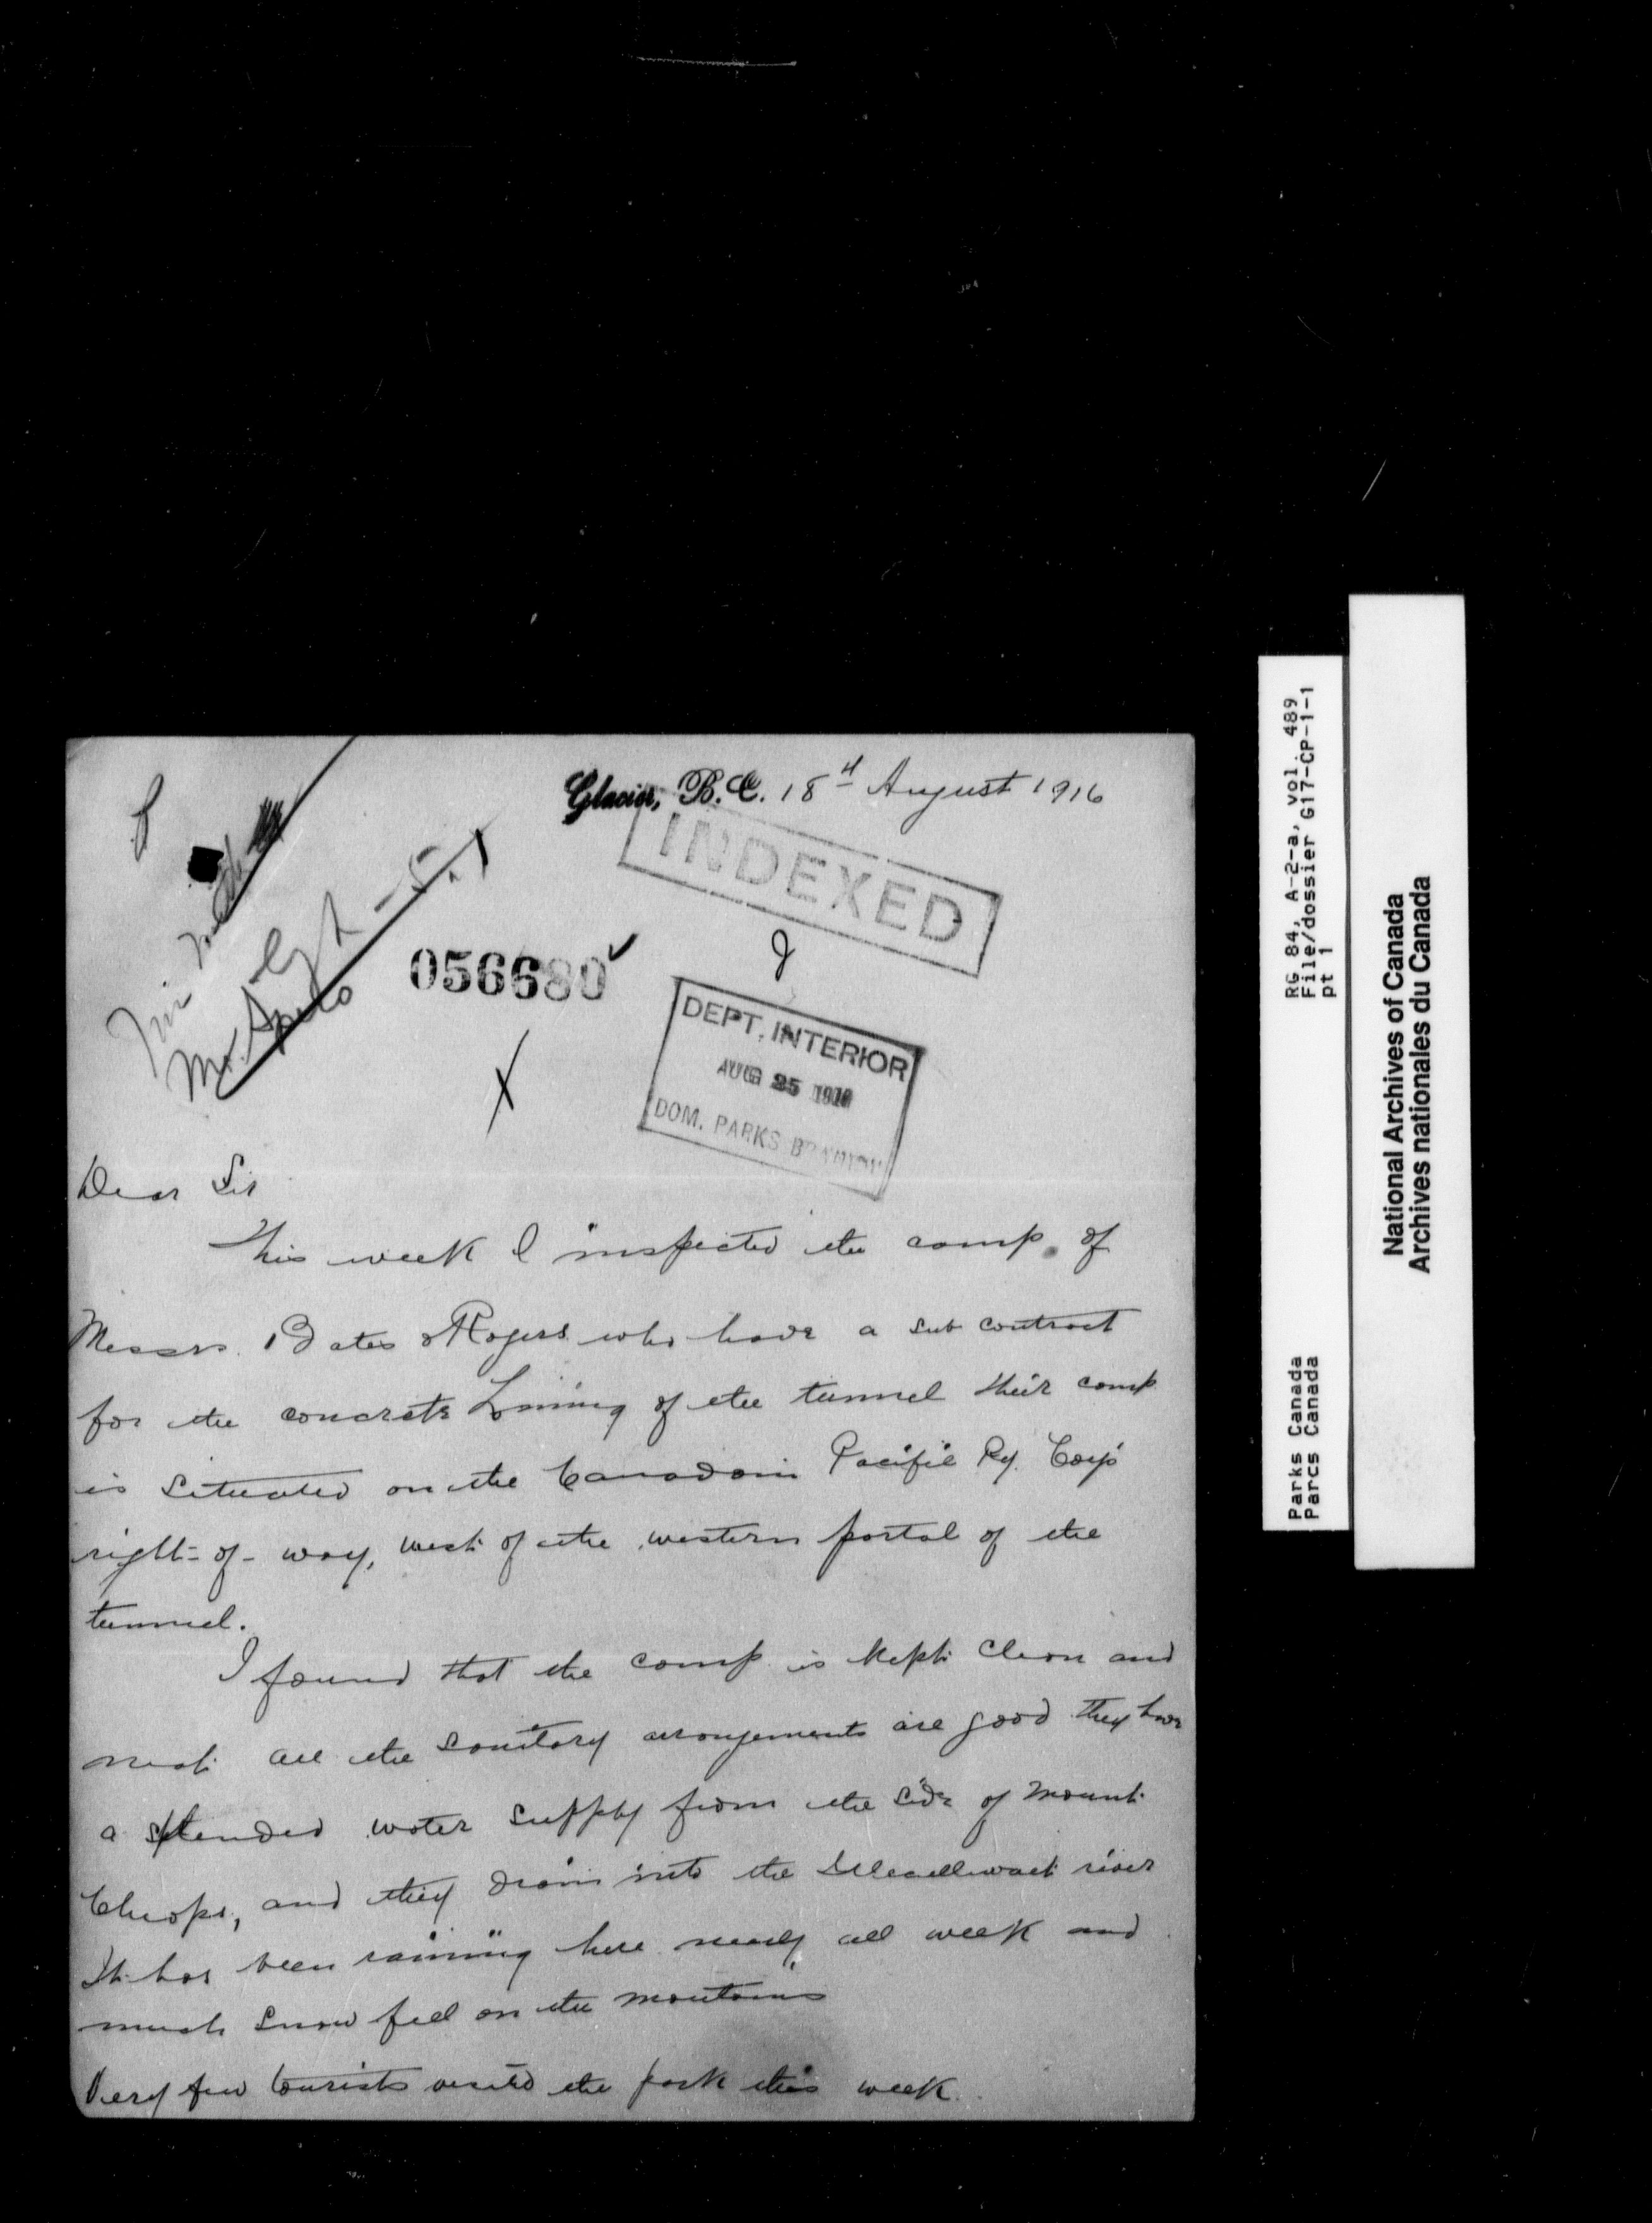 Glacier, B.C. 18th August 1916
INDEXED
056680
DEPT. INTERIOR
AUG 25 1916
DOM. PARKS BRANCH
Dear Sir
This week I inspected the camp of
Messrs. Bates & Rogers who have a sub contract
for the concrete Lining of the tunnel their camp
is situated on the Canadain Pacific Ry. Coy's
right-of-way, west of the western portal of the
tunnel.
I found that the camp is kept clean and
neat all the sanitary arrangements are good they have
a splended water supply from the side of Mount
Cheops, and they drain into the Illecillewaet river
It has been raining here nearly all week and
much snow fell on the mountains
Very few tourists visited the park this week.
RG 84, A-2-a, vol. 489
File/dossier G17-CP-1-1
pt 1
Parks Canada
Parcs Canada
National Archives of Canada
Archives nationales du Canada